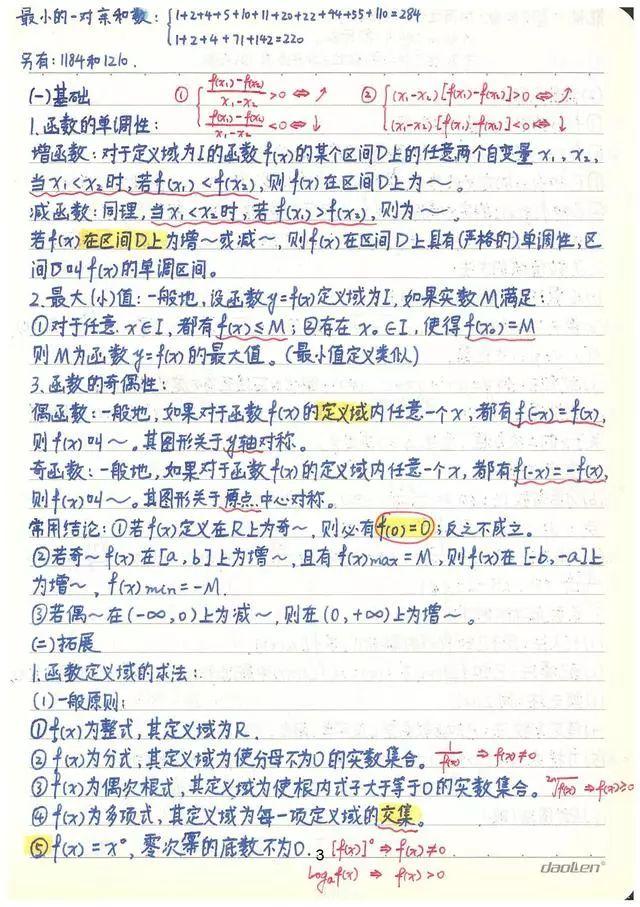 最小的一对亲和数：{1+2+4+5+10+11+20+22+44+55+110=284
1+2+4+71+142=220
另有：1184和1210.
(一)基础 ① {f(x₁)-f(x₂)/x₁-x₂ >0 ⇔ ↗ ② {(x₁-x₂)[f(x₁)-f(x₂)]>0 ⇔ ↗
1.函数的单调性： f(x₁)-f(x₂)/x₁-x₂ <0 ⇔ ↓ (x₁-x₂)[f(x₁)-f(x₂)]<0 ⇔ ↓
增函数：对于定义域为I的函数f(x)的某个区间D上的任意两个自变量x₁、x₂,
当x₁<x₂时,若f(x₁)<f(x₂),则f(x)在区间D上为～。
减函数：同理,当x₁<x₂时,若f(x₁)>f(x₂),则为～。
若f(x)在区间D上为增～或减～,则f(x)在区间D上具有(严格的)单调性,区
间D叫f(x)的单调区间。
2.最大(小)值：一般地,设函数y=f(x)定义域为I,如果实数M满足：
①对于任意x∈I,都有f(x)≤M；②有在x₀∈I,使得f(x₀)=M
则M为函数y=f(x)的最大值。(最小值定义类似)
3.函数的奇偶性：
偶函数：一般地,如果对于函数f(x)的定义域内任意一个x,都有f(-x)=f(x),
则f(x)叫～。其图形关于y轴对称。
奇函数：一般地,如果对于函数f(x)的定义域内任意一个x,都有f(-x)=-f(x),
则f(x)叫～。其图形关于原点中心对称。
常用结论：①若f(x)定义在R上为奇～,则必有f(0)=0；反之不成立。
②若奇～f(x)在[a,b]上为增～,且有f(x)max=M,则f(x)在[-b,-a]上
为增～,f(x)min=-M.
③若偶～在(-∞,0)上为减～,则在(0,+∞)上为增～。
(二)拓展
1.函数定义域的求法：
(1)一般原则：
①f(x)为整式,其定义域为R.
②f(x)为分式,其定义域为使分母不为0的实数集合。1/f(x) ⇒ f(x)≠0
③f(x)为偶次根式,其定义域为使根内式子大于等于0的实数集合。²ⁿ√f(x) ⇒ f(x)≥0
④f(x)为多项式,其定义域为每一项定义域的交集。
⑤f(x)=x⁰,零次幂的底数不为0. 3 [f(x)]⁰ ⇒ f(x)≠0
logₐf(x) ⇒ f(x)>0
daolen®